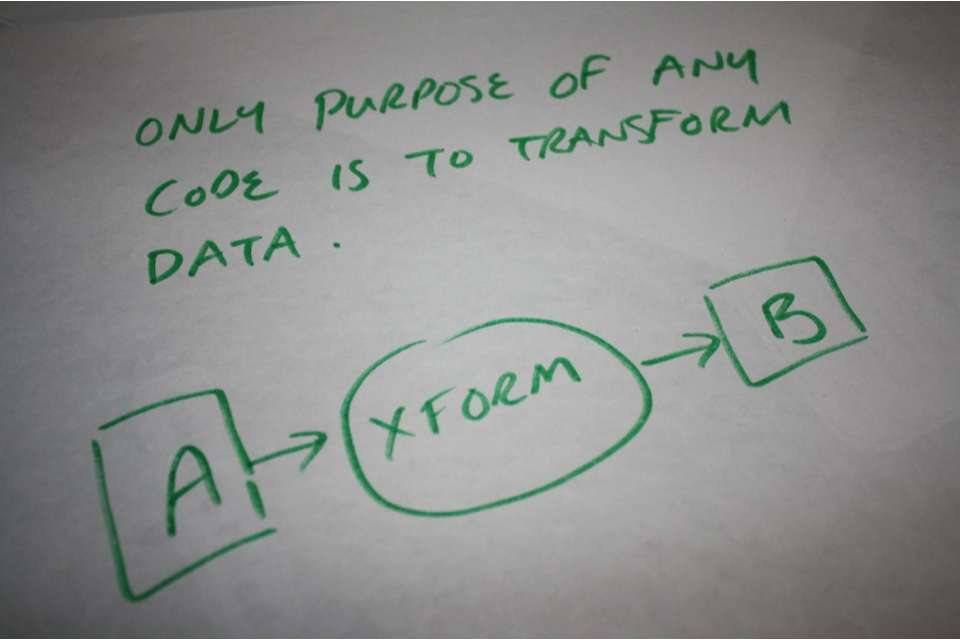 ONLY PURPOSE OF ANY
CODE IS TO TRANSFORM
DATA.
A
XFORM
B